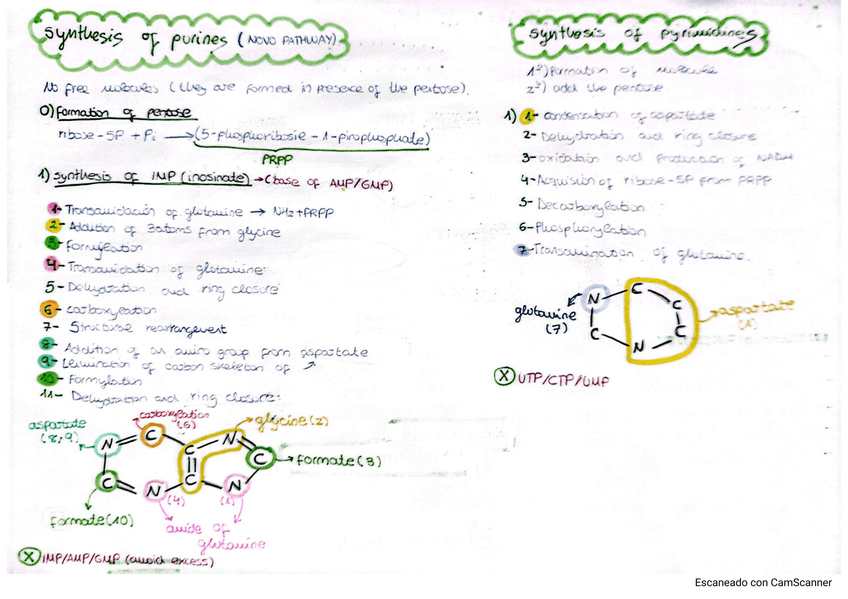 Synthesis of purines (NOVO PATHWAY)
No free molecules (they are formed in presence of the pentose).
0) Formation of pentose
ribose-5P + Pi → (5-phosphoribosil-1-pirophosphate)
PRPP
1) Synthesis of IMP (inosinate) → (base of AMP/GMP)
1- Transamidación of glutamine → NH2+PRPP
2- Addition of 3atoms from glycine
3- Formylation
4- Transamidation of glutamine
5- Dehydration and ring closure
6- carboxylation
7- Structural rearrangement
8- Addition of an amino group from aspartate
9- Elimination of carbon skeleton of ↗
10- Formylation
11- Dehydration and ring closure.
aspartate
(8,9)
carboxylation
(6)
glycine (2)
N
C
C
N
C
formate (3)
C
N
C
N
(4)
(1)
formate (10)
amide of
glutamine
X IMP/AMP/GMP (avoid excess)
Synthesis of pyrimidines
1º) formation of molecule
2º) add the pentose
1) 1- condensation of aspartate
2- Dehydration and ring closure
3- oxidation and production of NADH
4- Acquision of ribose-5P from PRPP
5- Decarboxylation
6- Phosphorylation
7- Transamination of glutamine.
glutamine
(7)
N
C
C
C
C
N
aspartate
(1)
X UTP/CTP/UMP
Escaneado con CamScanner